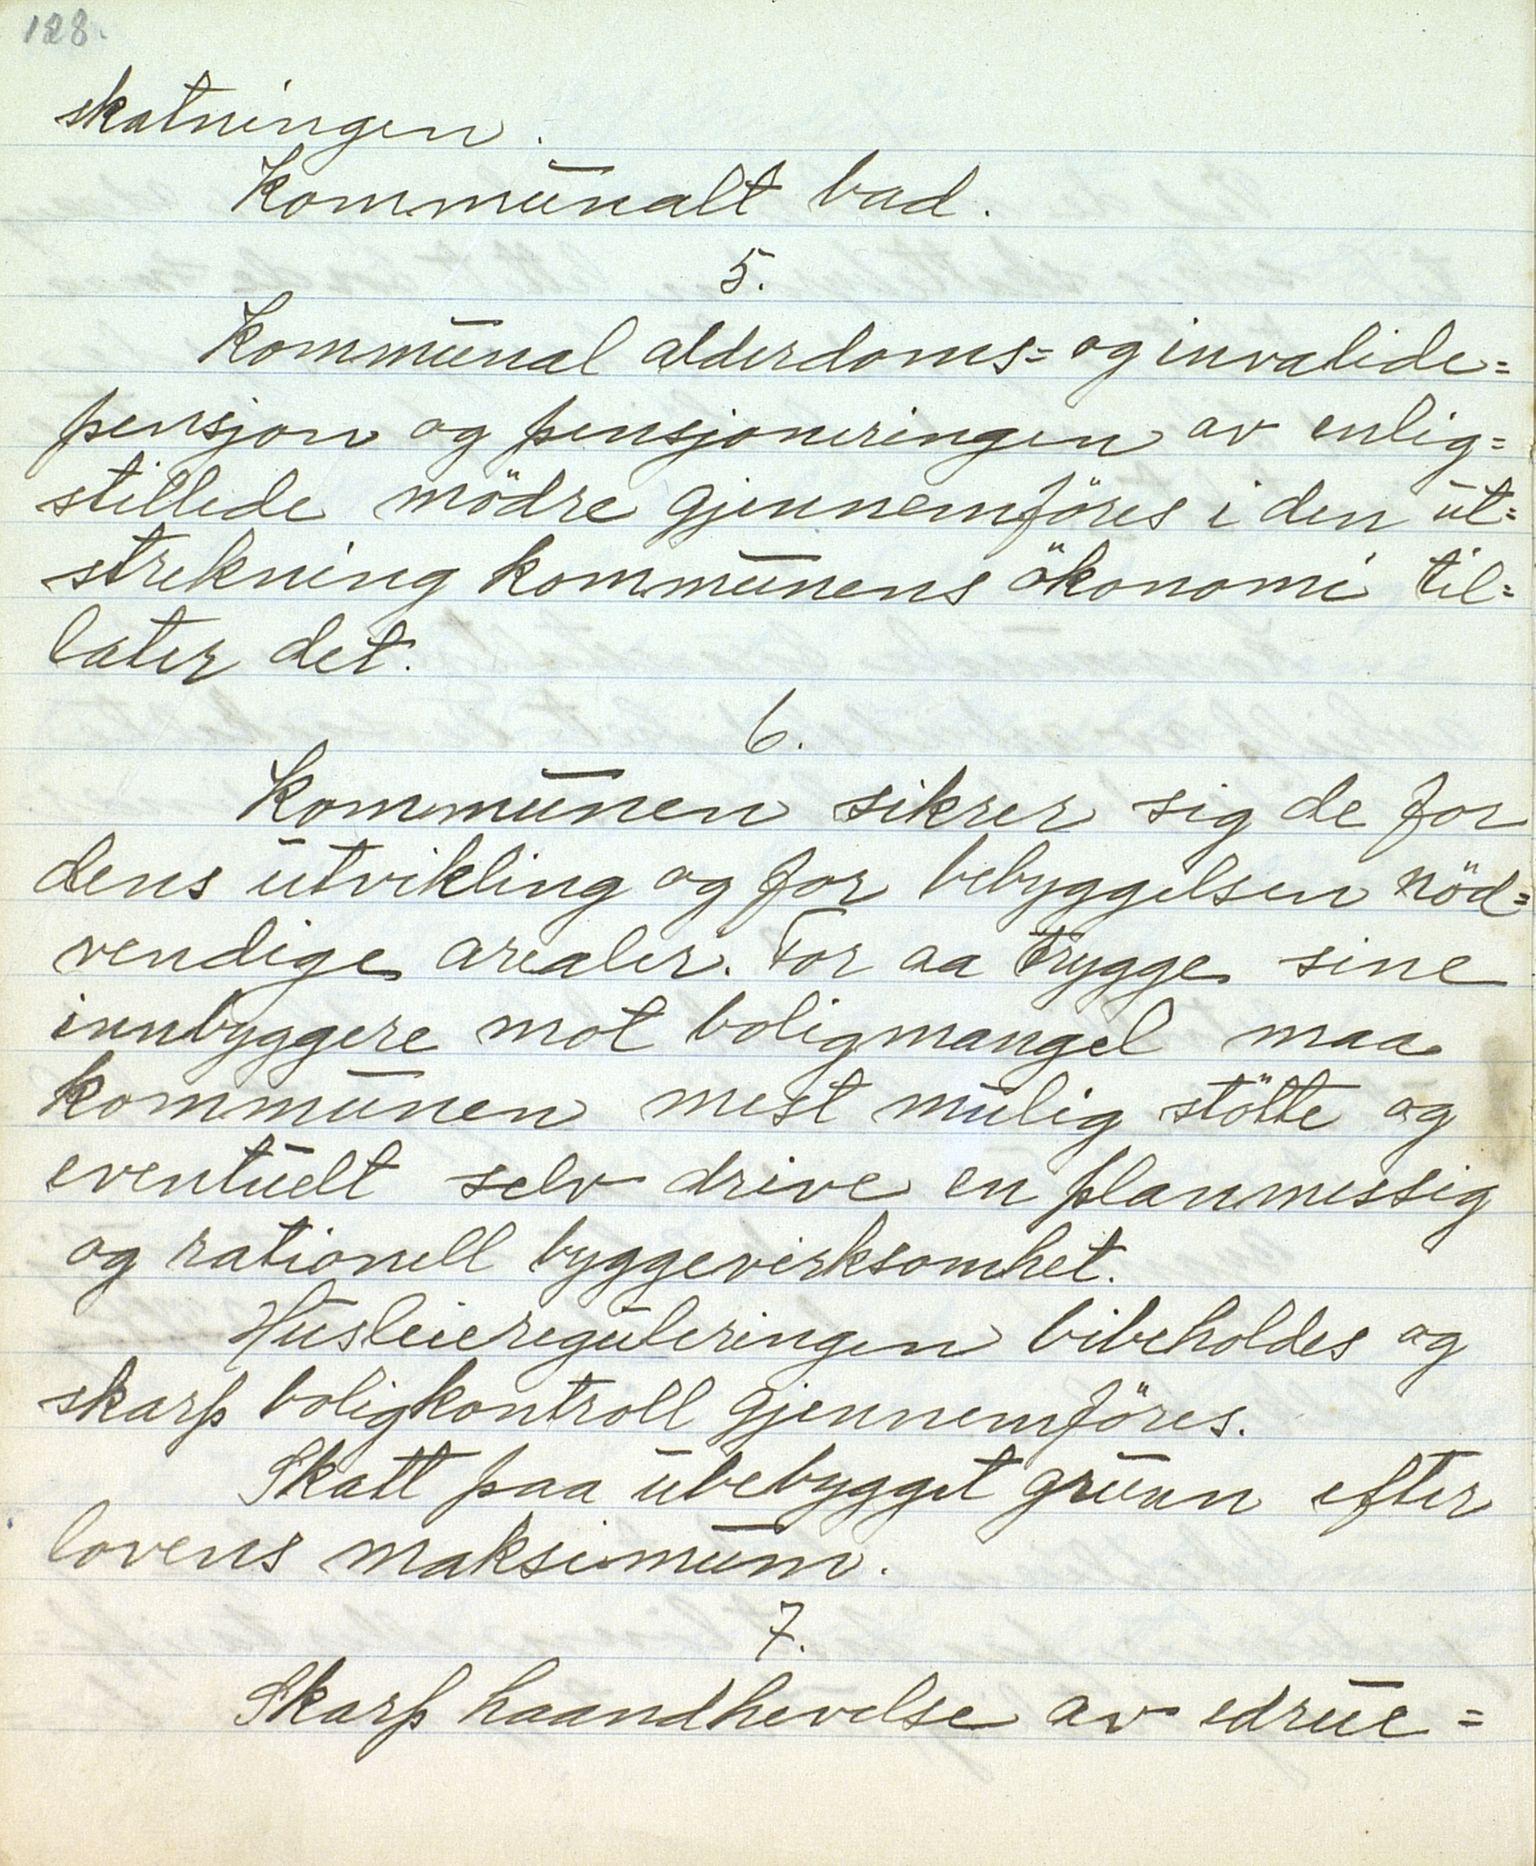 128.
skatningen.
Kommunalt bad.
5.
Kommunal alderdoms= og invalide=
pensjon og pensjoneringen av enlig=
stillede mödre gjennemföres i den ut=
strekning kommunens ökonomi til=
later det.
6.
Kommunen sikrer sig de for
dens utvikling og for bebyggelsen nöd=
vendige arealer. For aa trygge sine
innbyggere mot boligmangel maa
kommunen mest mulig stötte og
eventuelt selv drive en planmessig
og rationell byggevirksomhet.
Husleiereguleringen bibeholdes og
skarp boligkontroll gjennemföres.
Skatt paa ubebygget grunn efter
lovens maksimum.
7.
Skarp haandhevelse av edrue=